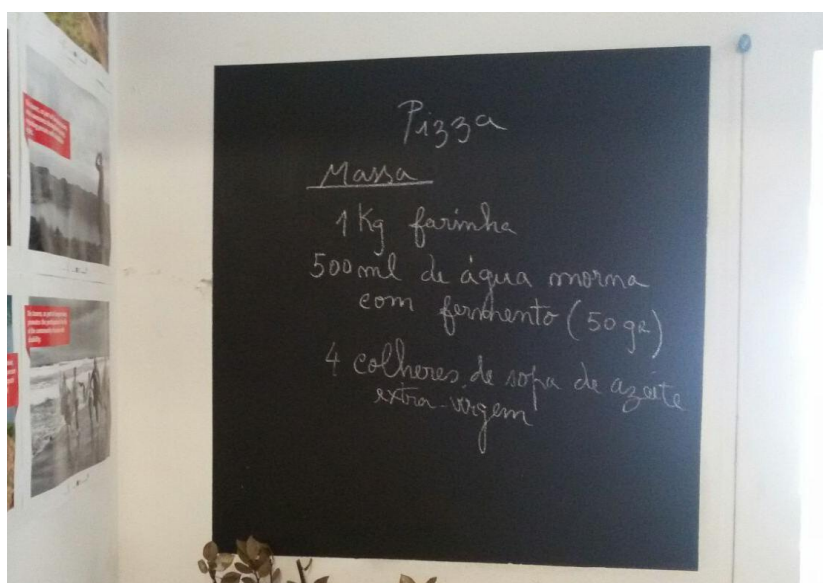 Pizza
Massa
1 Kg farinha
500 ml de água morna
com fermento (50 gr)
4 colheres de sopa de azeite
extra-virgem